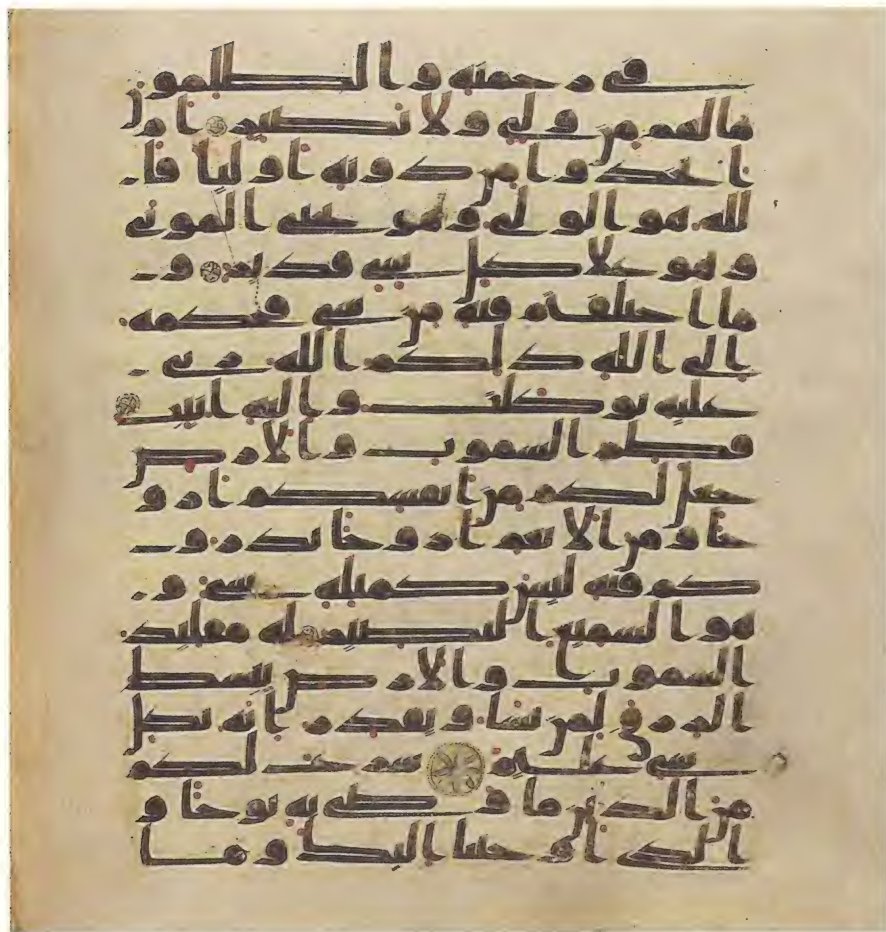 في رحمته والظلمون
ما لهم من ولي ولا نصير ام
اتخذوا من دونه اوليا فا
لله هو الولي وهو يحيي الموتى
وهو علا كل شي قدير و
ما اختلفتم فيه من شي فحكمه
الى الله ذلكم الله ربي
عليه توكلت واليه انيب
فطر السموت والارض
جعل لكم من انفسكم ازو
جا ومن الانعم ازوجا يذرو
كم فيه ليس كمثله شي و
هو السميع البصير له مقليد
السموت والارض يبسط
الرزق لمن يشا ويقدر انه بكل
شي عليم شرع لكم
من الدين ما وصى به نوحا و
الذي اوحينا اليك وما